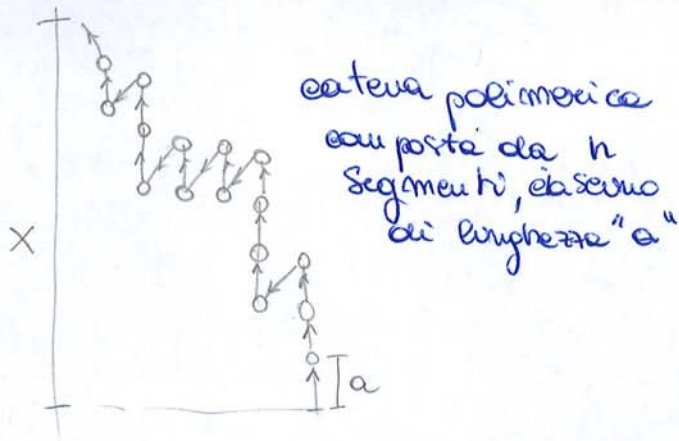 catena polimerica
composta da n
segmenti, ciascuno
di lunghezza "a"
X
a